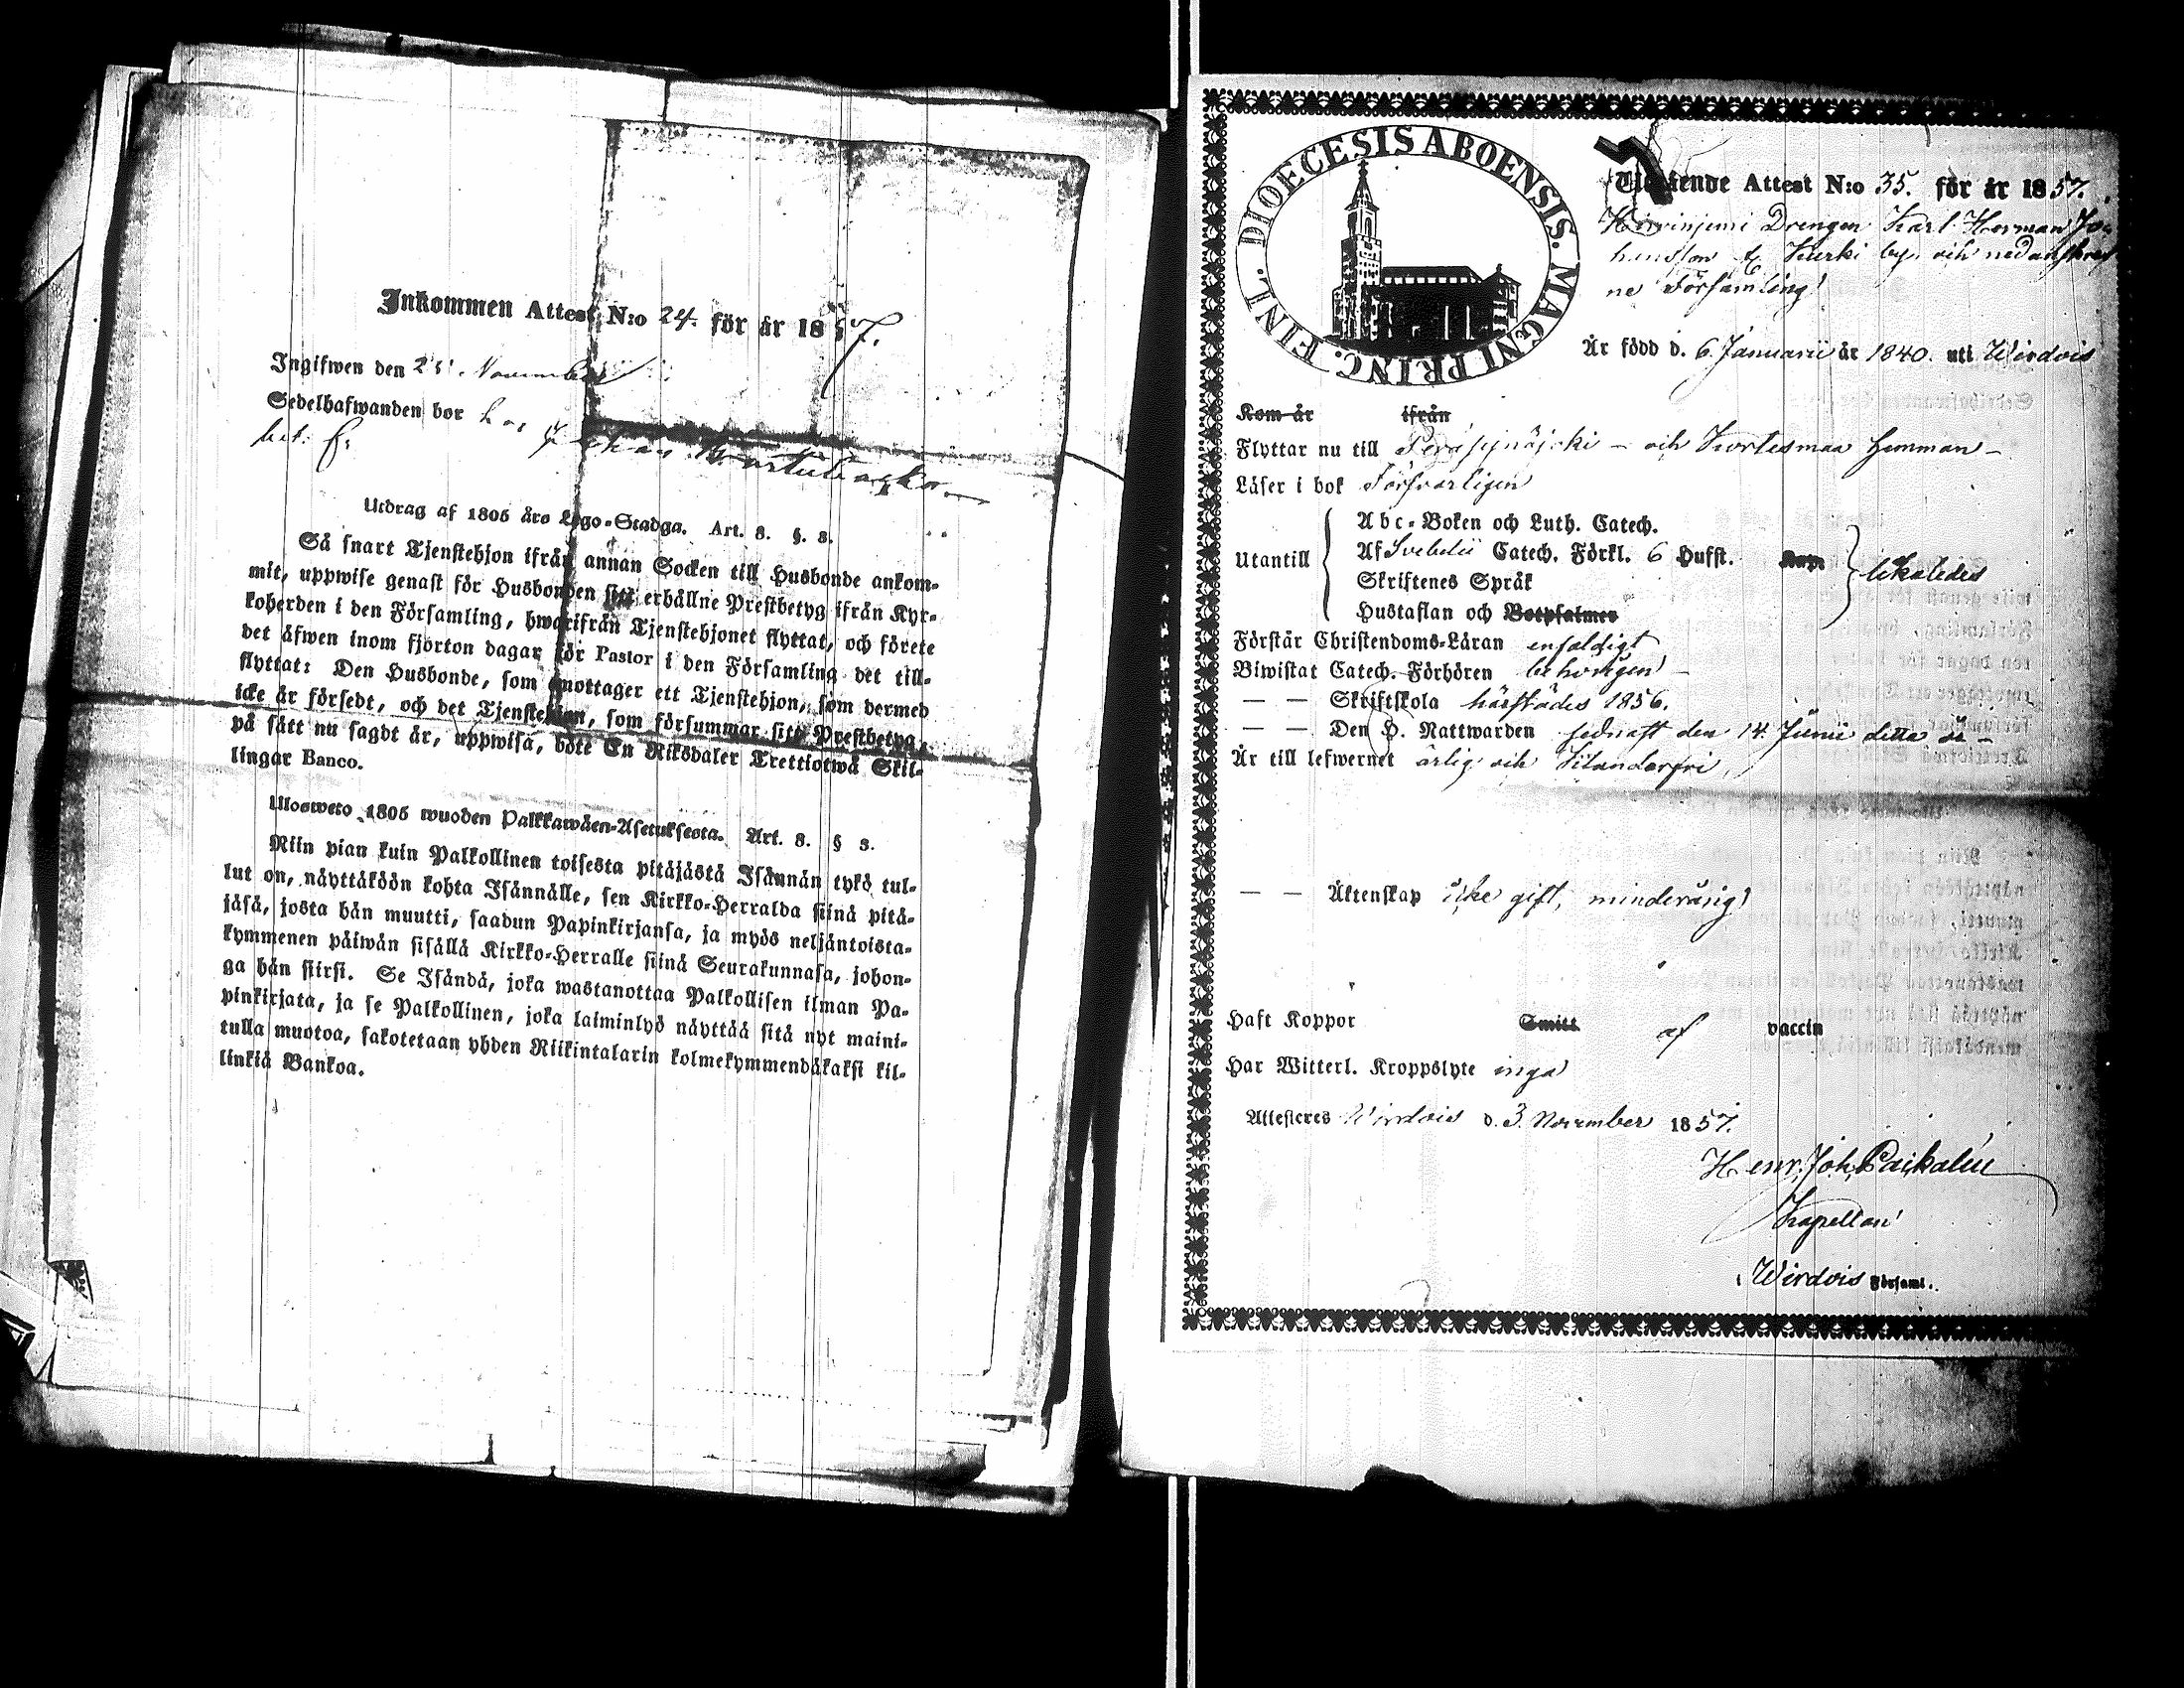 Inkommen Attest N:o 24. för år 1857.
Ingifwen den 25. November
Sedelhafwanden bor hos
Utdrag af 1805 års Lego-Stadga. Art. 8. §. 3.
Så snart Tjenstehjon ifrån annan Socken till Husbonde ankom-
mit, uppwise genast för Husbonden sitt erhållne Prestbetyg ifrån Kyr-
koherden i den Församling, hwarifrån Tjenstehjonet flyttat, och förete
det äfwen inom fjorton dagar för Pastor i den Församling det till-
flyttat: Den Husbonde, som emottager ett Tjenstehjon, som dermed
icke är försedt, och det Tjenstehjon, som försummar sitt Prestbetyg,
på sätt nu sagdt är, uppwisa, böte En Riksdaler Trettiotwå Skil-
lingar Banco.
Ulosweto 1805 wuoden Palkkawäen-Asetuksesta. Art. 8. § 3.
Niin pian kuin Palkollinen toisesta pitäjästä Isännän tykö tul-
lut on, näyttäköön kohta Isännälle, sen Kirkko-Herralda siinä pitä-
jäsä, josta hän muutti, saadun Papinkirjansa, ja myös neljäntoista-
kymmenen päiwän sisällä Kirkko-Herralle siinä Seurakunnasa, johon-
ga hän siirsi. Se Isändä, joka wastanottaa Palkollisen ilman Pa-
pinkirjata, ja se Palkollinen, joka laiminlyö näyttää sitä nyt maini-
tulla muotoa, sakotetaan yhden Riikintalarin kolmekymmendäkaksi kil-
linkiä Bankoa.
DIOECESIS ABOENSIS. MAGNI PRINC. FINL.
Attest N:o 35. för år 1857.
Drengen Karl Herman Jo-
hansson Kurki by och nedanskref
ne Församling
Är född d. 6 Januarii år 1840. uti Wirdois
Kom år ifrån
Flyttar nu till Peräseinäjoki - och Kortesmaa hemman -
Läser i bok Försvarligen
Abc-Boken och Luth. Catech.
Utantill Af Svebelii Catech. Förkl. 6 Hufst. likaledes
Skriftenes Språk
Hustaflan och Botpsalmer
Förstår Christendoms-Läran enfaldigt
Biwistat Catech. Förhören behörigen -
— — Skriftskola härstädes 1856.
— — Den H. Nattwarden sednast den 14 Junii detta år -
Är till lefwernet ärlig och
— — Äktenskap icke gift, minderårig
Haft Koppor Smitt af vaccin
Har Witterl. Kroppslyte inga
Attesteres Wirdois d. 3 November 1857.
Henr. Joh.
Kapellan
Wirdois Församl.